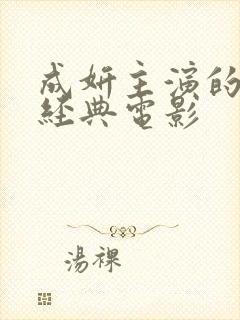 成妍主演的
經典電影
湯裸